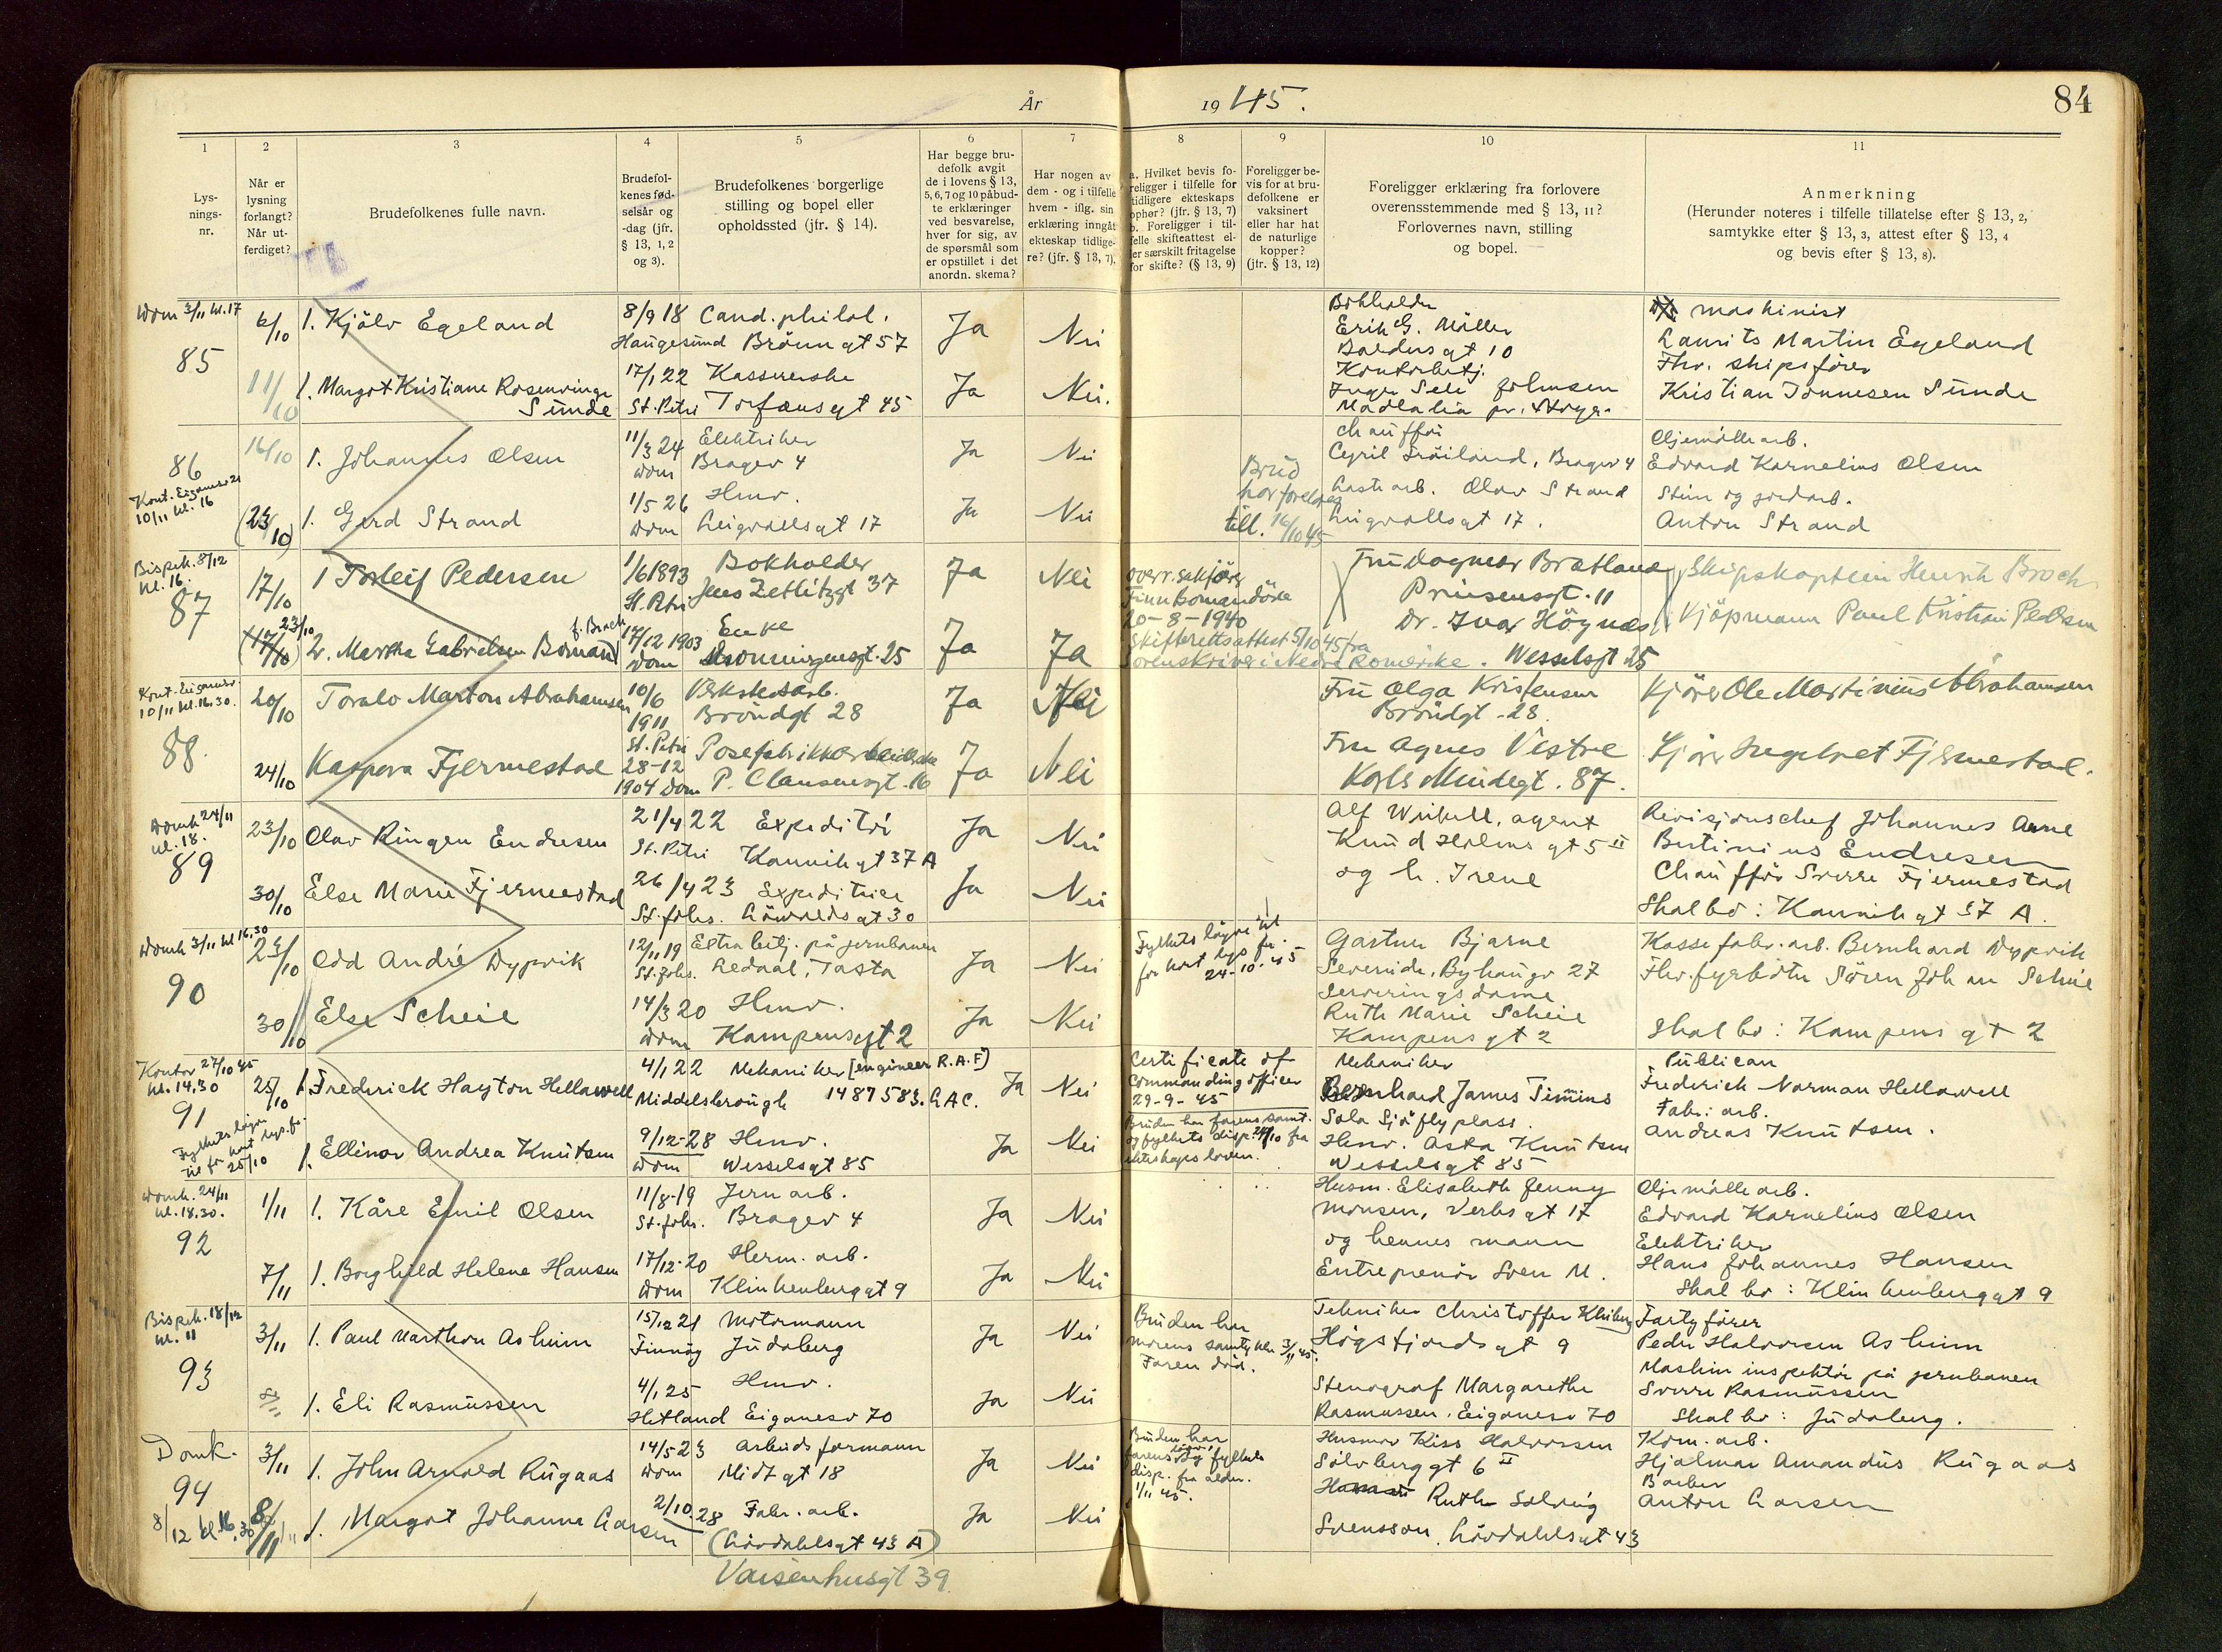 År 1945.
84
1 2 3 4 5 6 7 8 9 10 11
Lys-
nings-
nr.
Når er
lysning
forlangt?
Når ut-
ferdiget?
Brudefolkenes fulle navn.
Brudefol-
kenes fød-
selsår og
-dag (jfr.
§ 13, 1, 2
og 3).
Brudefolkenes borgerlige
stilling og bopel eller
opholdssted (jfr. § 14).
Har begge bru-
defolk avgit
de i lovens § 13,
5, 6, 7 og 10 påbud-
te erklæringer
ved besvarelse,
hver for sig, av
de spørsmål som
er opstillet i det
anordn. skema?
Har nogen av
dem - og i tilfelle
hvem - iflg. sin
erklæring inngåt
ekteskap tidlige-
re? (jfr. § 13, 7),
a. Hvilket bevis fo-
religger i tilfelle for
tidligere ekteskaps
ophør? (jfr. § 13, 7)
b. Foreligger i til-
felle skifteattest el-
ler særskilt fritagelse
for skifte? (§ 13, 9)
Foreligger be-
vis for at bru-
defolkene er
vaksinert
eller har hat
de naturlige
kopper?
(jfr. § 13, 12)
Foreligger erklæring fra forlovere
overensstemmende med § 13, 11?
Forlovernes navn, stilling
og bopel.
Anmerkning
(Herunder noteres i tilfelle tillatelse efter § 13, 2,
samtykke efter § 13, 3, attest efter § 13, 4
og bevis efter § 13, 8).
Dom 3/11 kl. 17
85
6/10 1. Kjölv Egeland
8/9 18 Cand. philol.
Haugesund Brönngt 57
Ja Nei
Bokholder
Erik G. Möller
Baldersgt 10
maskinist
Laurits Martin Egeland
11/10 1. Margot Kristiane Rosenvinge
Sunde
17/1 22 Kassererske
St. Petri Torfæusgt 45
Ja Nei.
Kontorbetj.
Johnsen
Madlalia
Fhv. skipsförer
Kristian Tönnesen Sunde
86
Kont. Eiganesv 21
10/11 kl. 16
16/10 1. Johannes Olsen
11/3 24 Elektriker
Dom Bragev 4
Ja Nei
Chaufför
Cyril Tröiland, Bragev 4
Oljemölle arb.
Edvard Kornelius Olsen
(23/10) 1. Gerd Strand
1/5 26 Hmv.
Dom Leigvollsgt 17
Ja Nei
Brud
har foreldres
till. 16/10 45
Lastearb. Olav Strand
Leigvollsgt 17.
Sten og jordarb.
Anton Strand
Bispek. 8/12
kl. 16.
87
17/10 1 Torleif Pedersen
1/6 1893 Bokholder
St. Petri Jens Zetlitzgt 37
Ja Nei
overr. sakförer
20-8-1940
Fru Dagmar Bratland
Prinsensgt. 11
Skipskaptein Henrik Broch
23/10
(17/10) 2. Martha Gabrielsen Bomand
f. Broch
17/12 1903 Enke
Dom Dronningensgt. 25
Ja Ja
Skifterettsattest 5/10 45 fra
Sorenskriver i Nedre Romerike.
Dr. Ivar Högnæs
Wesselsgt 25
Kjöpmann Paul Kristian Pedersen
Kont. Eiganesv.
10/11 kl. 16.30.
88.
20/10 Toralv Marton Abrahamsen
10/6 Verkstedarb.
1911 Bröndgt 28
St. Petri
Ja Nei
Fru Olga Kristensen
Bröndgt - 28.
Kjörer Ole Martinius Abrahamsen
24/10 Kaspara Fjermestad
28-12 Posefabrikkarbeiderske
1904 Dom P. Clausensgt. 16
Ja Nei
Fru Agnes Vestre
Karls Mindegt. 87.
Kjörer Ingebret Fjermestad.
Domk 24/11
kl. 18.
89
23/10 Olav Ringen Endresen
21/4 22 Expeditör
St. Petri Kannikgt 37 A
Ja Nei
Alf Wikell, agent
Knud Holms gt 5 II
og h. Irene
Revisjonschef Johannes Arne
Bertinius Endresen
30/10 Else Marie Fjermestad
26/4 23 Expeditrice
St. Johs. Lövoldsgt 30
Ja Nei
Chaufför Sverre Fjermestad
Skal bo: Kannikgt 37 A.
Domk 3/11 kl 16.30
90
23/10 Odd André Dypvik
12/11 19 Extra betj. på jernbanen
St. Johs. Ledaal, Tasta
Ja Nei
Fylkets löyve til
for kort lys. fr.
24-10-45
Gartner Bjarne
Severeide, Byhaugv 27
Kassefabr.arb. Bernhard Dypvik
30/10 Else Scheie
14/3 20 Hmv.
Dom Kampensgt 2
Ja Nei
Serveringsdame
Ruth Marie Scheie
Kampens gt 2
Fhv. fyrböter Sören Johan Scheie
Skal bo: Kampens gt 2
Kontor 27/10 45
kl. 14.30
91
Fylkets löyve
til for kort lys. fr.
25/10
25/10 1. Frederick Hayton Hellawell
4/1 22 Mekaniker [engineer R.A.F]
Middelsbrough 1487583. L.A.C.
Ja Nei
Certificate of
Commanding officer
29-9-45
Mekaniker
Bernhard James Timmins
Sola Sjöflyplass.
Publican
Frederick Norman Hellawell
1. Ellinor Andrea Knutsen
9/12-28 Hmv.
Dom Wesselsgt 85
Ja Nei
Bruden har farens samt.
og fylkets disp. 24/10 fra
ekteskapsloven.
Hmv. Asta Knutsen
Wesselsgt 85
Fabr. arb.
Andreas Knutsen.
Domk. 24/11
kl. 18.30.
92
1/11 1. Kåre Emil Olsen
11/8-19 Jernarb.
St. Johs. Bragev 4
Ja Nei
Husm. Elisabeth Jenny
Monsen, Verksgt 17
Oljemölle arb.
Edvard Kornelius Olsen
7/11 1. Borghild Helene Hansen
17/12-20 Herm. arb.
Dom Klinkenberggt 9
Ja Nei
og hennes mann
Entreprenör Sven M.
Elektriker
Hans Johannes Hansen
Skal bo: Klinkenberggt 9
Bispek. 18/12
kl. 11
93
3/11 1. Paul Marthon Asheim
15/12 21 Motormann
Finnöy Judaberg
Ja Nei
Bruden har
morens samtykke 3/11 45.
Faren död.
Tekniker Christoffer Kleiberg
Högsfjordsgt 9
Fartyförer
Peder Halvorsen Asheim
1. Eli Rasmussen
4/1 25 Hmv.
Hetland Eiganesv 70
Ja Nei
Stenograf Margarethe
Rasmussen, Eiganesv 70
Maskininspektör på jernbanen
Sverre Rasmussen
Skal bo: Judaberg.
Domk.
94
8/12 kl. 16.30
3/11 1. John Arnold Rugaas
14/5 23 Arbeidsformann
Dom Midtgt 18
Ja Nei
Bruden har
farens löyve og fylkets
disp. fra alder.
1/11 45.
Husmor Kiss Halvorsen
Sölvberggt 6 II
Kom. arb.
Hjalmar Amandus Rugaas
8/11 1. Margot Johanne Larsen
2/10 28 Fabr. arb.
(Lövdahlsgt 43 A)
Vaisenhusgt 39.
Ja Nei
Ruth Solveig
Svensson, Lövdahlsgt 43
Barber
Anton Larsen